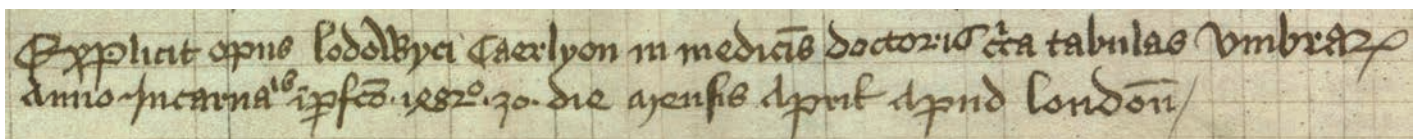 Explicit opus lodowyci Caerlyon in medicis doctoris cĩca tabulas vmbraꝝ
Anno Incarnatis ip̱fc̄o 1482º 30 die mensis April apud londoñ